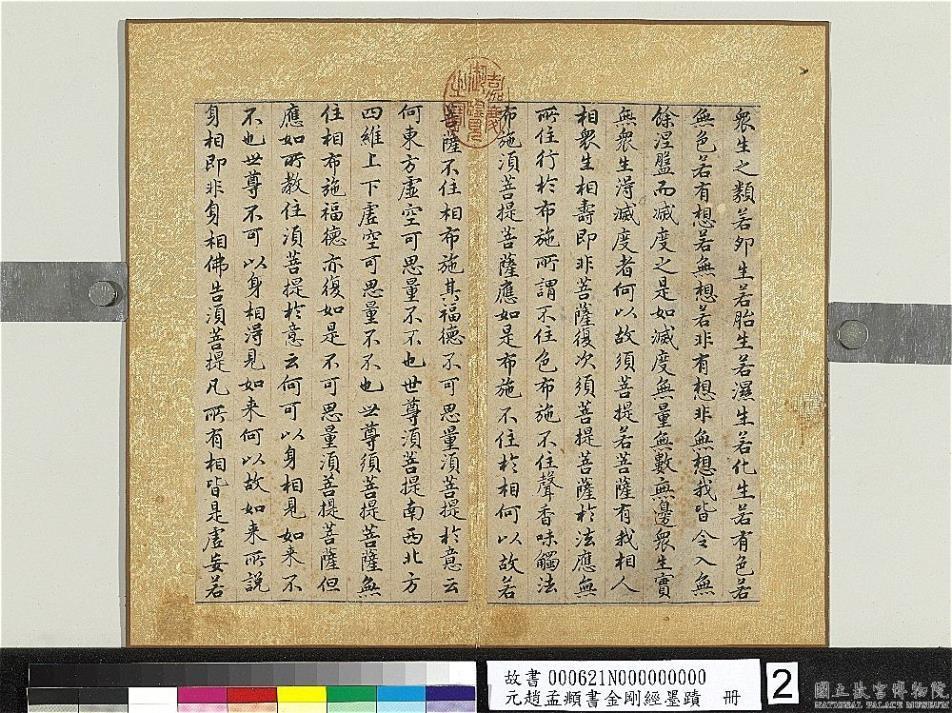 衆生之類若卵生若胎生若濕生若化生若有色若
無色若有想若無想若非有想非無想我皆令入無
餘涅盤而滅度之是如滅度無量無數無邊衆生實
無衆生得滅度者何以故須菩提若菩薩有我相人
相衆生相壽即非菩薩復次須菩提菩薩於法應無
所住行於布施所謂不住色布施不住聲香味觸法
布施須菩提菩薩應如是布施不住於相何以故若
菩薩不住相布施其福德不可思量須菩提於意云
何東方虛空可思量不不也世尊須菩提南西北方
四維上下虛空可思量不不也世尊須菩提菩薩無
住相布施福德亦復如是不可思量須菩提菩薩但
應如所教住須菩提於意云何可以身相見如来不
不也世尊不可以身相得見如来何以故如来所說
身相即非身相佛告須菩提凡所有相皆是虛妄若
故書 000621N000000000
元趙孟頫書金剛經墨蹟 冊
2
國立故宮博物院
NATIONAL PALACE MUSEUM